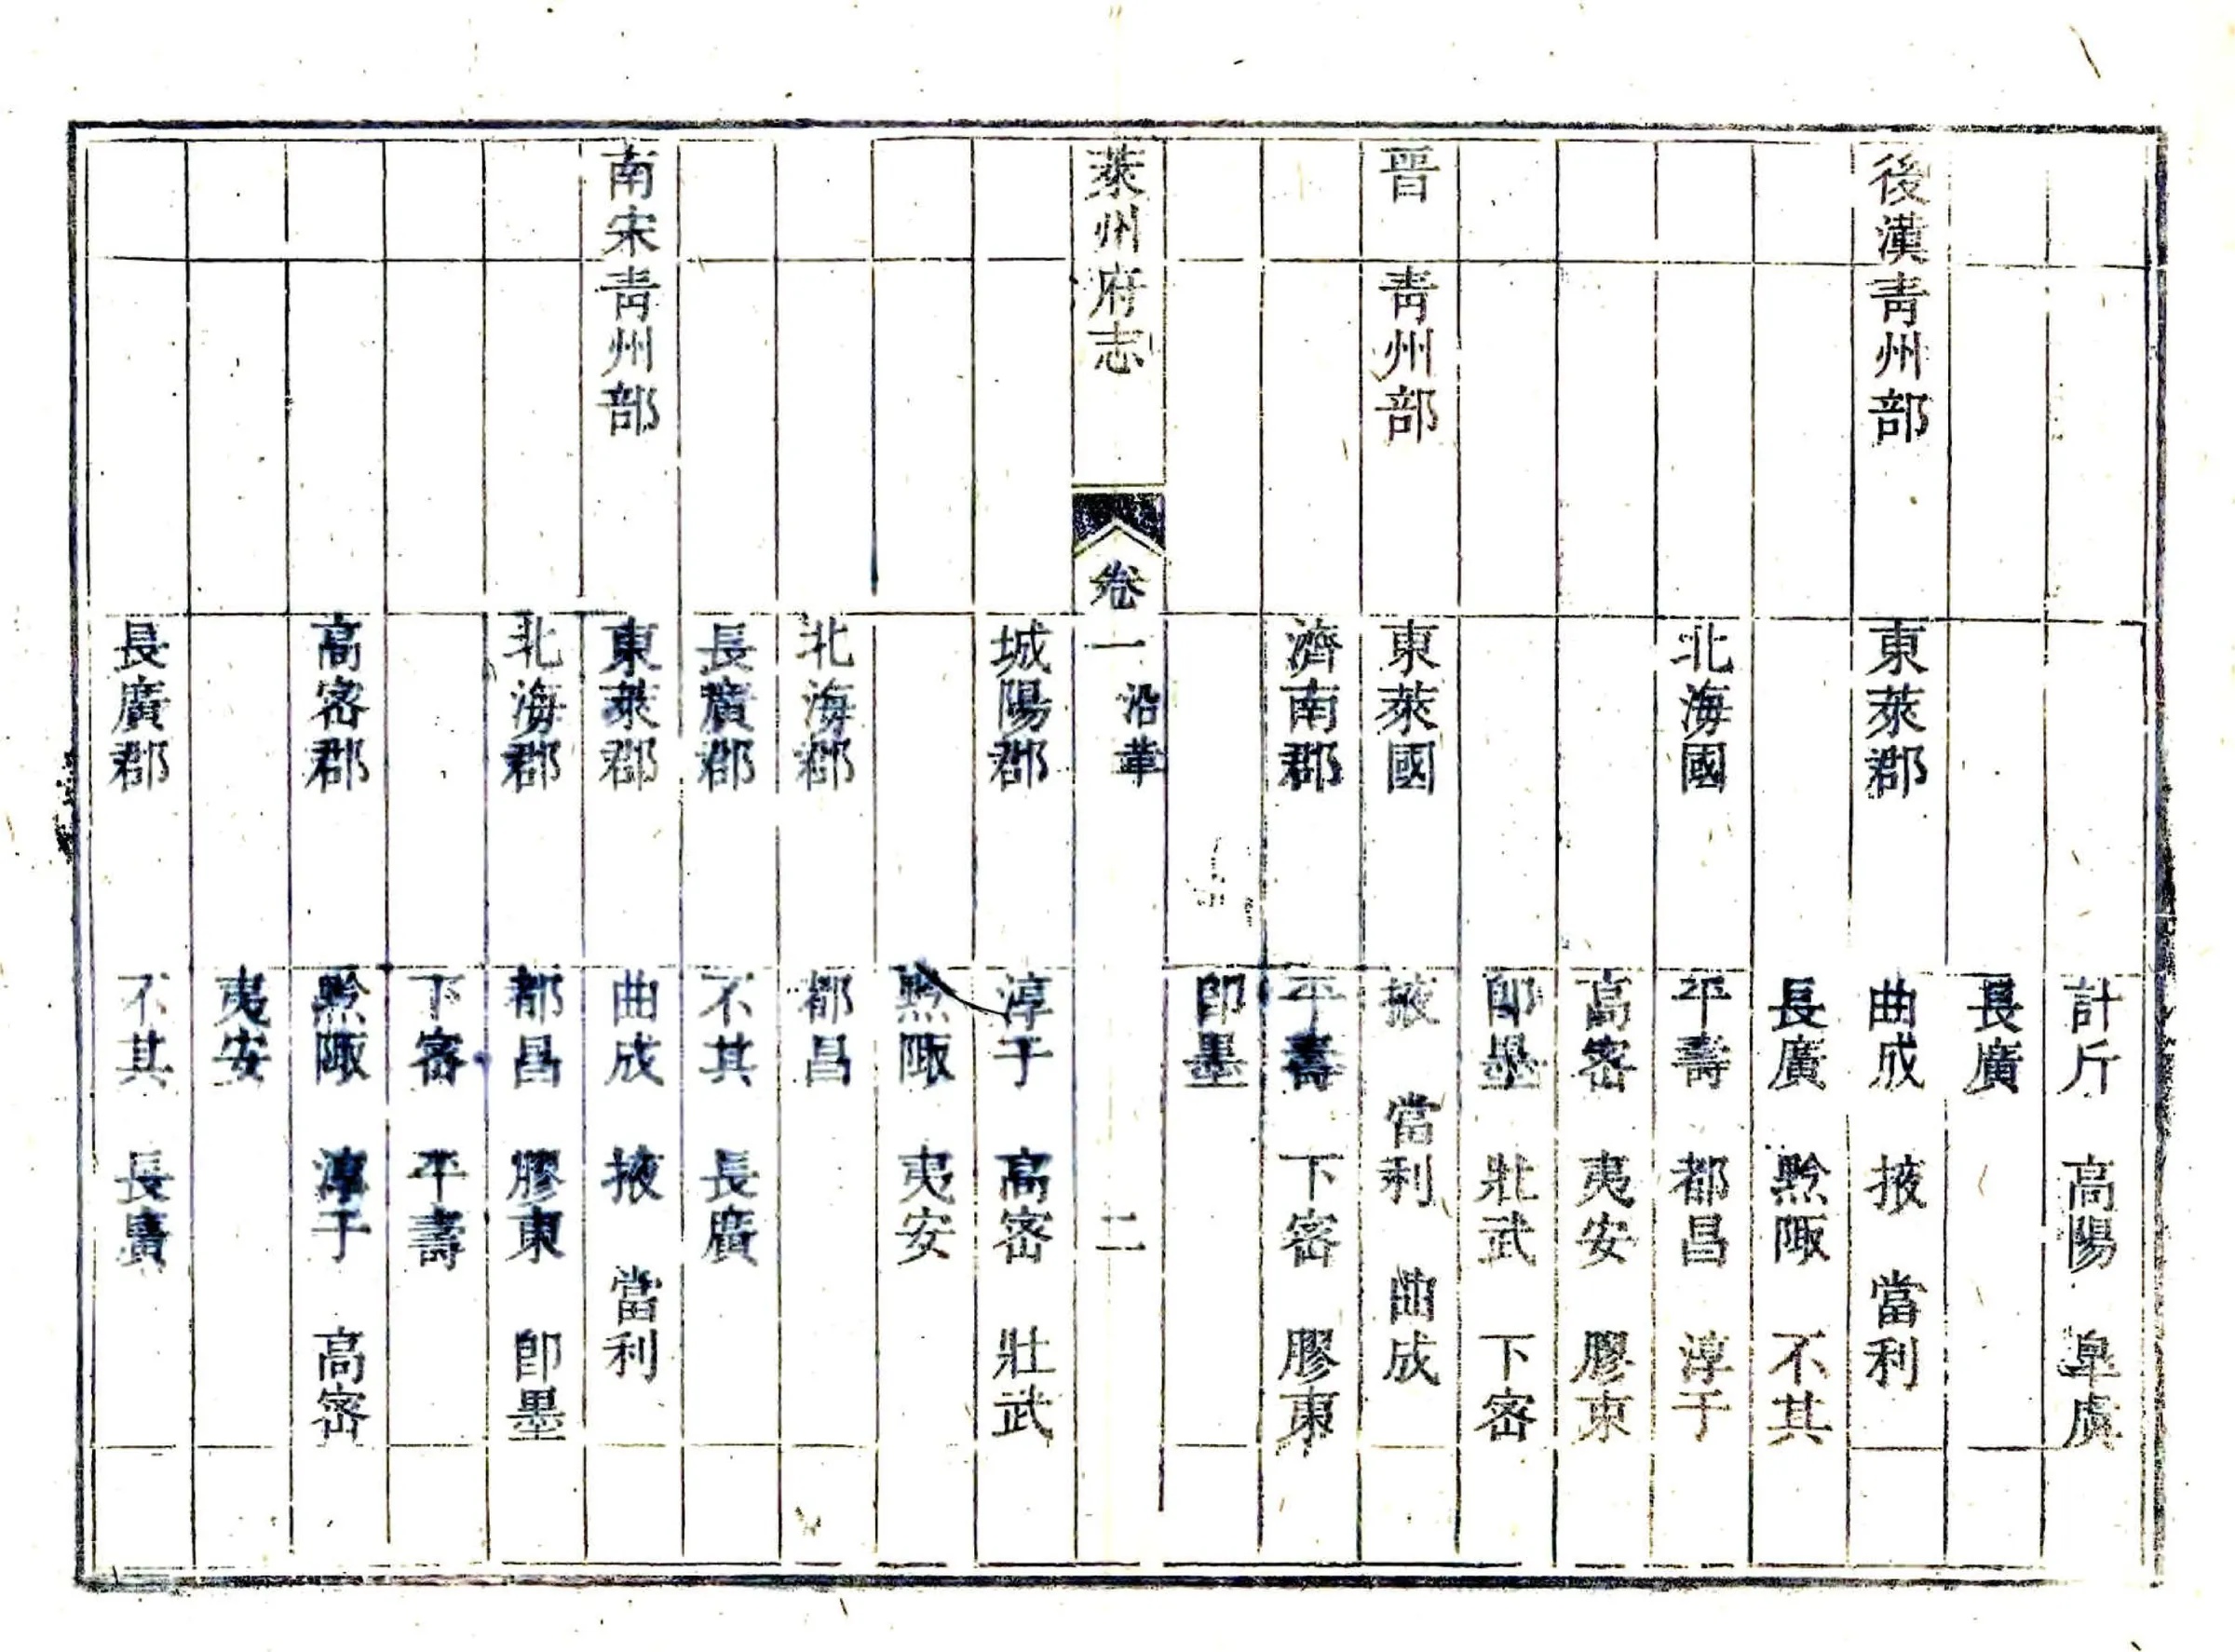 計斤 高陽 臯虞
長廣
後漢青州部 東萊郡 曲成 掖 當利
長廣 黔陬 不其
北海國 平壽 都昌 淳于
高密 夷安 膠東
卽墨 壯武 下密
晉 青州部 東萊國 掖 當利 曲成
濟南郡 平壽 下密 膠東
卽墨
萊州府志 卷一 沿革 二
城陽郡 淳于 高密 壯武
黔陬 夷安
北海郡 都昌
長廣郡 不其 長廣
南宋青州部 東萊郡 曲成 掖 當利
北海郡 都昌 膠東 卽墨
下密 平壽
高密郡 黔陬 淳于 高密
夷安
長廣郡 不其 長廣